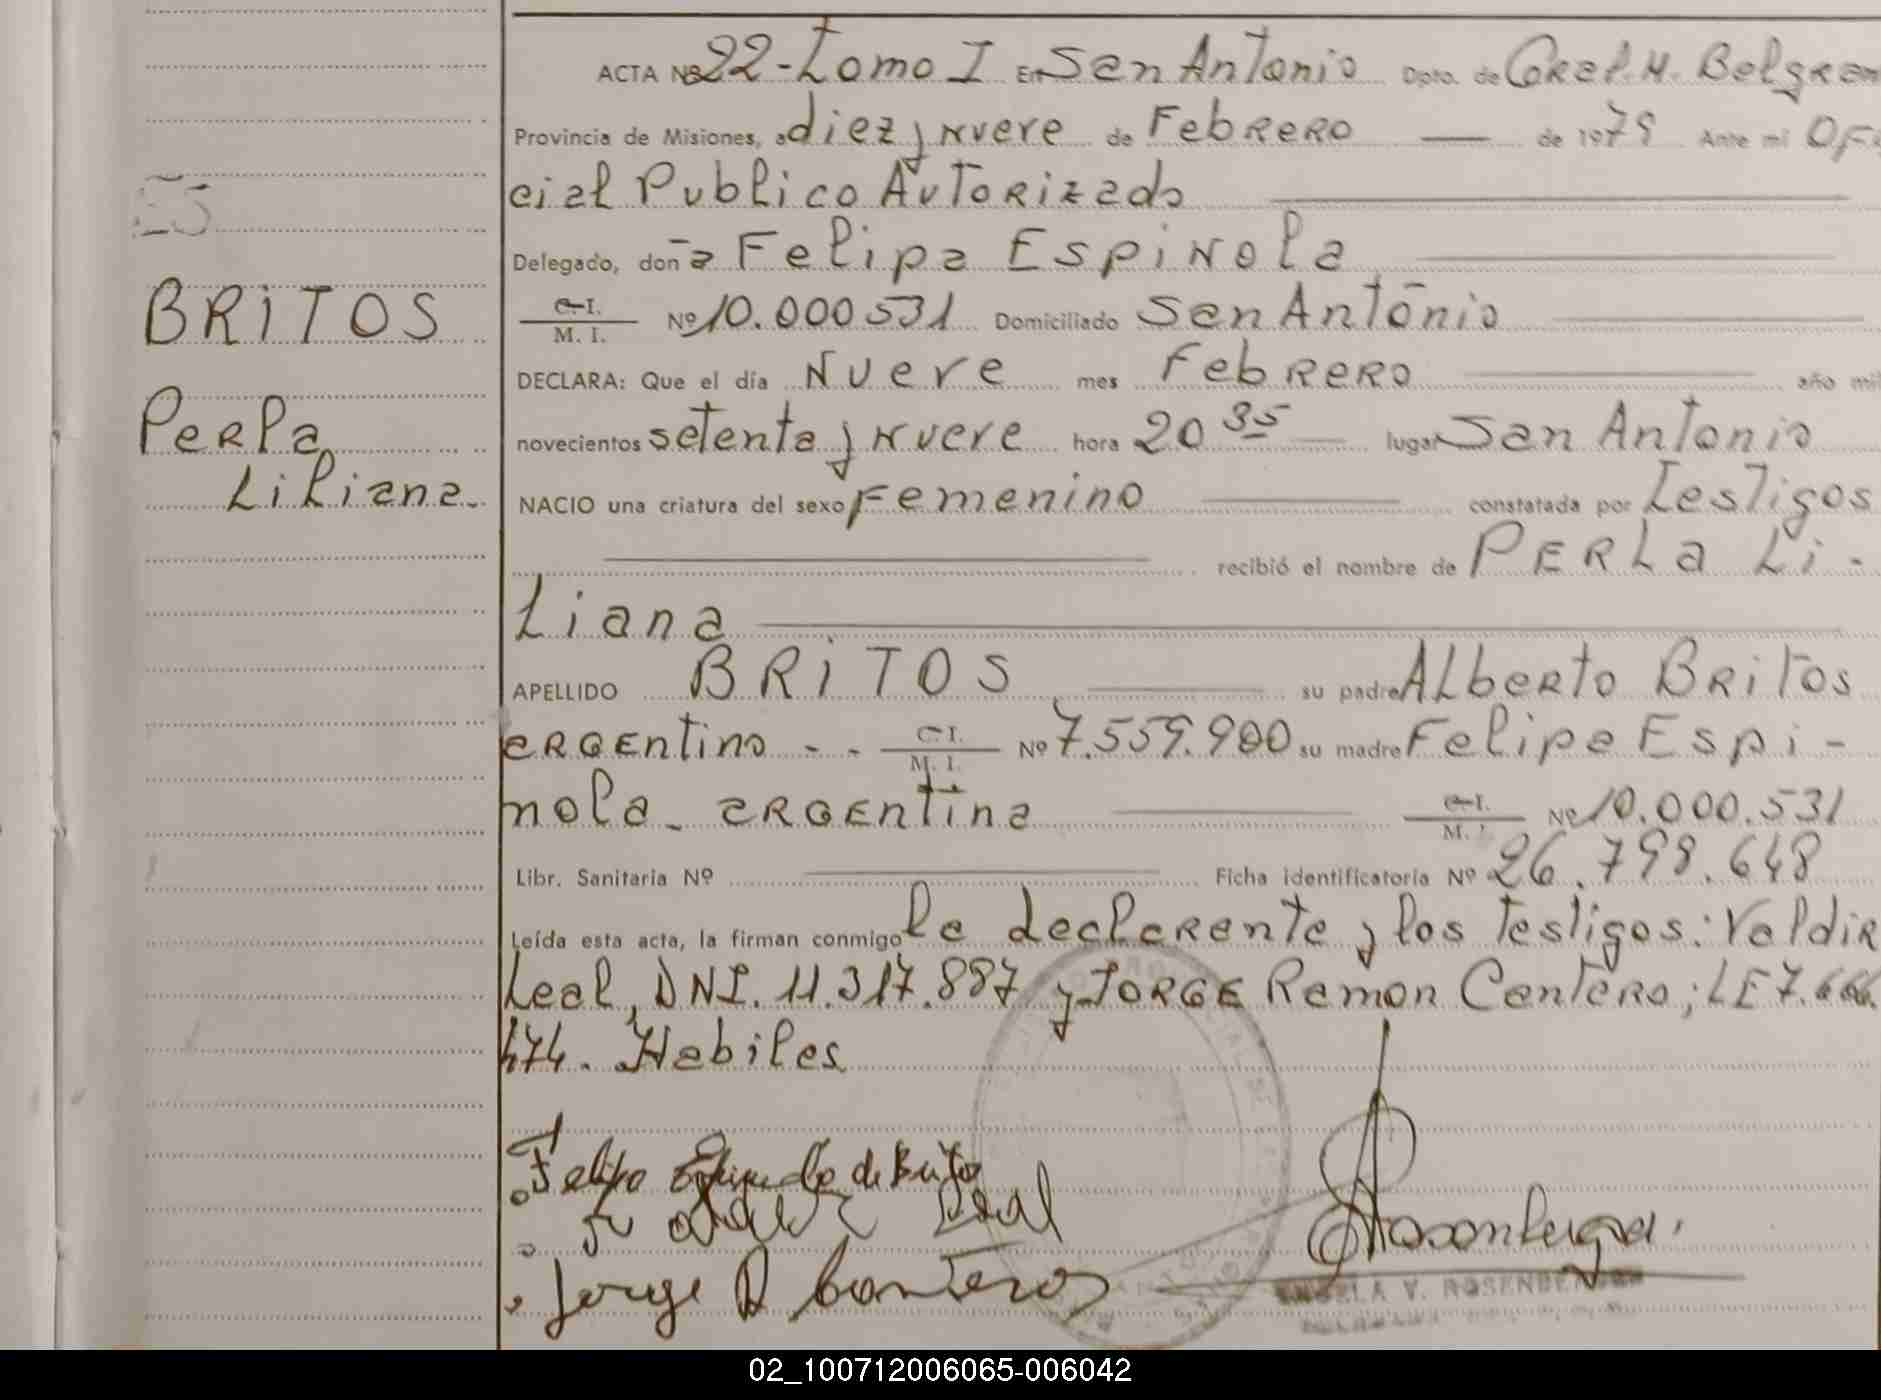 BRITOS
Perla
Liliana.
ACTA Nº 22 - Tomo I En San Antonio Dpto. de Gral. M. Belgran
Provincia de Misiones, a diez y nueve de Febrero — de 1979 Ante mi Ofi
cial Publico Autorizado
Delegado, don a Felipa Espinola
C.I. M. I. Nº 10.000531 Domiciliado San Antonio
DECLARA: Que el día Nueve mes Febrero año mil
novecientos setenta y nueve hora 20 35 lugar San Antonio
NACIO una criatura del sexo Femenino constatada por Testigos
recibió el nombre de PERLA Li -
Liana
APELLIDO BRITOS su padre Alberto Britos
argentino - - C.I. M. I. Nº 7.559.900 su madre Felipa Espi -
nola - argentina C.I. M. I. Nº 10.000.531
Libr. Sanitaria Nº Ficha identificatoria Nº 26.798.648
Leída esta acta, la firman conmigo la declarente y los testigos: Valdir
Leal, DNI. 11.317.887 y JORGE Ramon Centero; LE 7.666.
474. Habiles
Leal
Jorge R Centeros
ANGELA V. ROSENBERGER
02_100712006065-006042